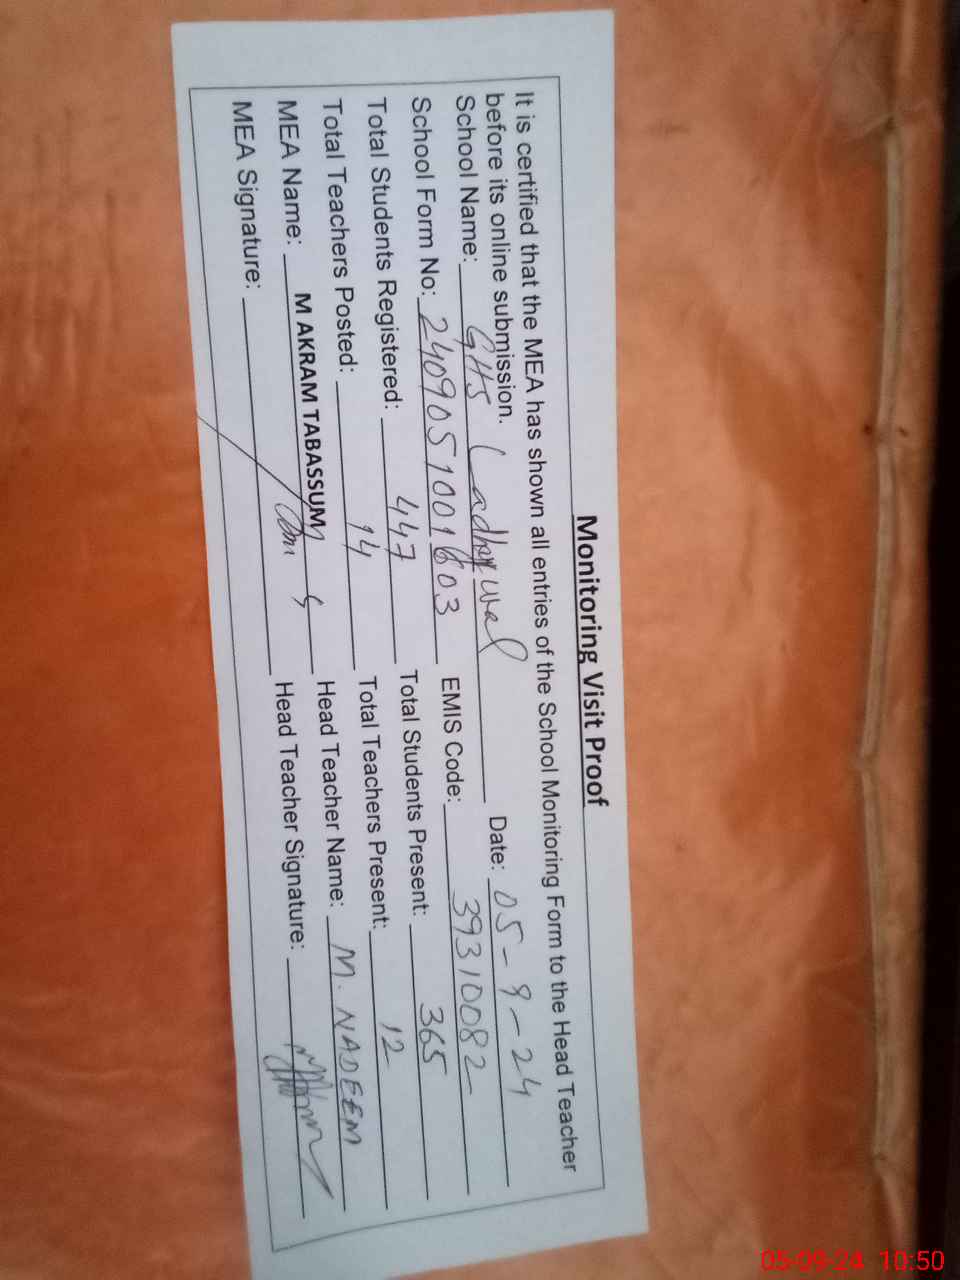 Monitoring Visit Proof
It is certified that the MEA has shown all entries of the School Monitoring Form to the Head Teacher
before its online submission.
School Name: GHS Ladhywal Date: 05-9-24
School Form No: 2409051001603 EMIS Code: 39310082
Total Students Registered: 447 Total Students Present: 365
Total Teachers Posted: 14 Total Teachers Present: 12
MEA Name: M AKRAM TABASSUM Head Teacher Name: M. NADEEM
MEA Signature: Head Teacher Signature:
05-09-24 10:50